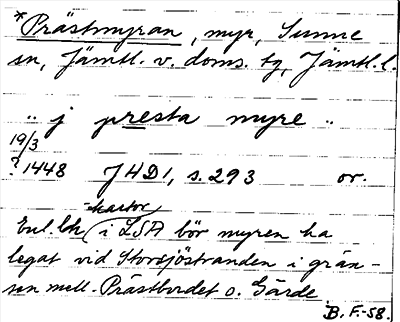 *Prästmyran, myr, Sunne
sn, Jämtl. v. doms. tg, Jämtl. l.
"j presta myre"
19/3
? 1448 JHD1, s. 293 or.
kartor
Enl. lh i LSA bör myren ha
legat vid Storsjöstranden i grän-
sen mell. Prästbordet o. Gärde.
B. F-58.